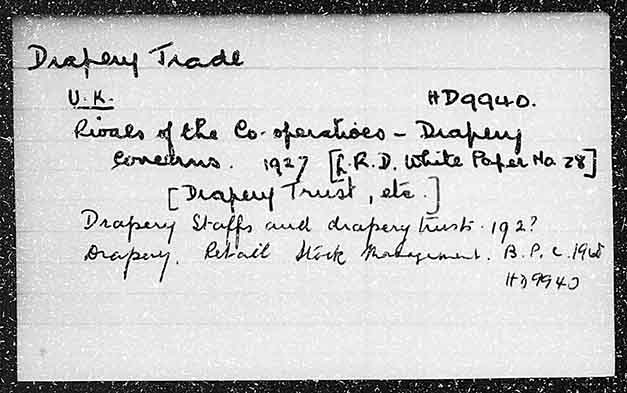 Drapery Trade
U.K. HD9940.
Rivals of the Co-operatives - Drapery
Concerns. 1927 [L.R.D. White Paper No 28]
[Drapery Trust, etc.]
Drapery Staffs and drapery trusts. 192?
Drapery. Retail Stock Management. B.P.C. 1968
HD9940